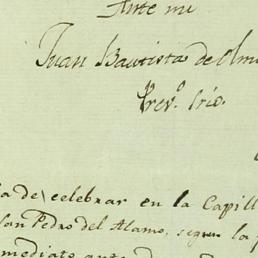 Ante mi
Juan Bautista de Olm
Prev.º Srio.
a de celebrar en la Capill
San Pedro del Alamo, segun la
mediato ante